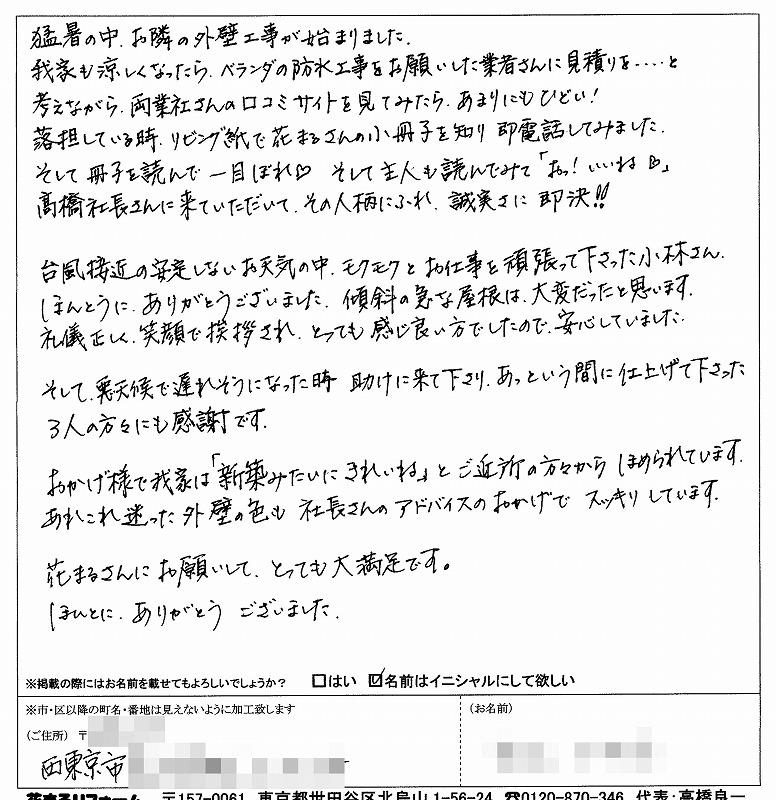 猛暑の中、お隣の外壁工事が始まりました。
我家も涼しくなったら、ベランダの防水工事をお願いした業者さんに見積りを‥‥と
考えながら、両業社さんの口コミサイトを見てみたら、あまりにもひどい！
落担している時、リビング紙で花まるさんの小冊子を知り 即電話してみました。
そして冊子を読んで 一目ぼれ♡ そして主人も読んでみて「おっ！いいね♡」
髙橋社長さんに来ていただいて、その人柄にふれ、誠実さに 即決!!
台風接近の安定しないお天気の中、モクモクとお仕事を頑張って下さった小林さん。
ほんとうに、ありがとうございました。傾斜の急な屋根は、大変だったと思います。
礼儀正しく、笑顔で挨拶され、とっても感じ良い方でしたので、安心していました。
そして、悪天候で遅れそうになった時 助けに来て下さり、あっという間に仕上げて下さった
3人の方々にも感謝です。
おかげ様で我家は「新築みたいにきれいね」とご近所の方々からほめられています。
あれこれ迷った外壁の色も 社長さんのアドバイスのおかげで スッキリしています。
花まるさんにお願いして、とっても大満足です。
ほんとに、ありがとう ございました。
※掲載の際にはお名前を載せてもよろしいでしょうか？ □はい ☑名前はイニシャルにして欲しい
※市・区以降の町名・番地は見えないように加工致します
(お名前)
(ご住所) 〒
西東京市
花まるリフォーム 〒157-0061 東京都世田谷区北烏山 1-56-24 ☎0120-870-346 代表：高橋良一